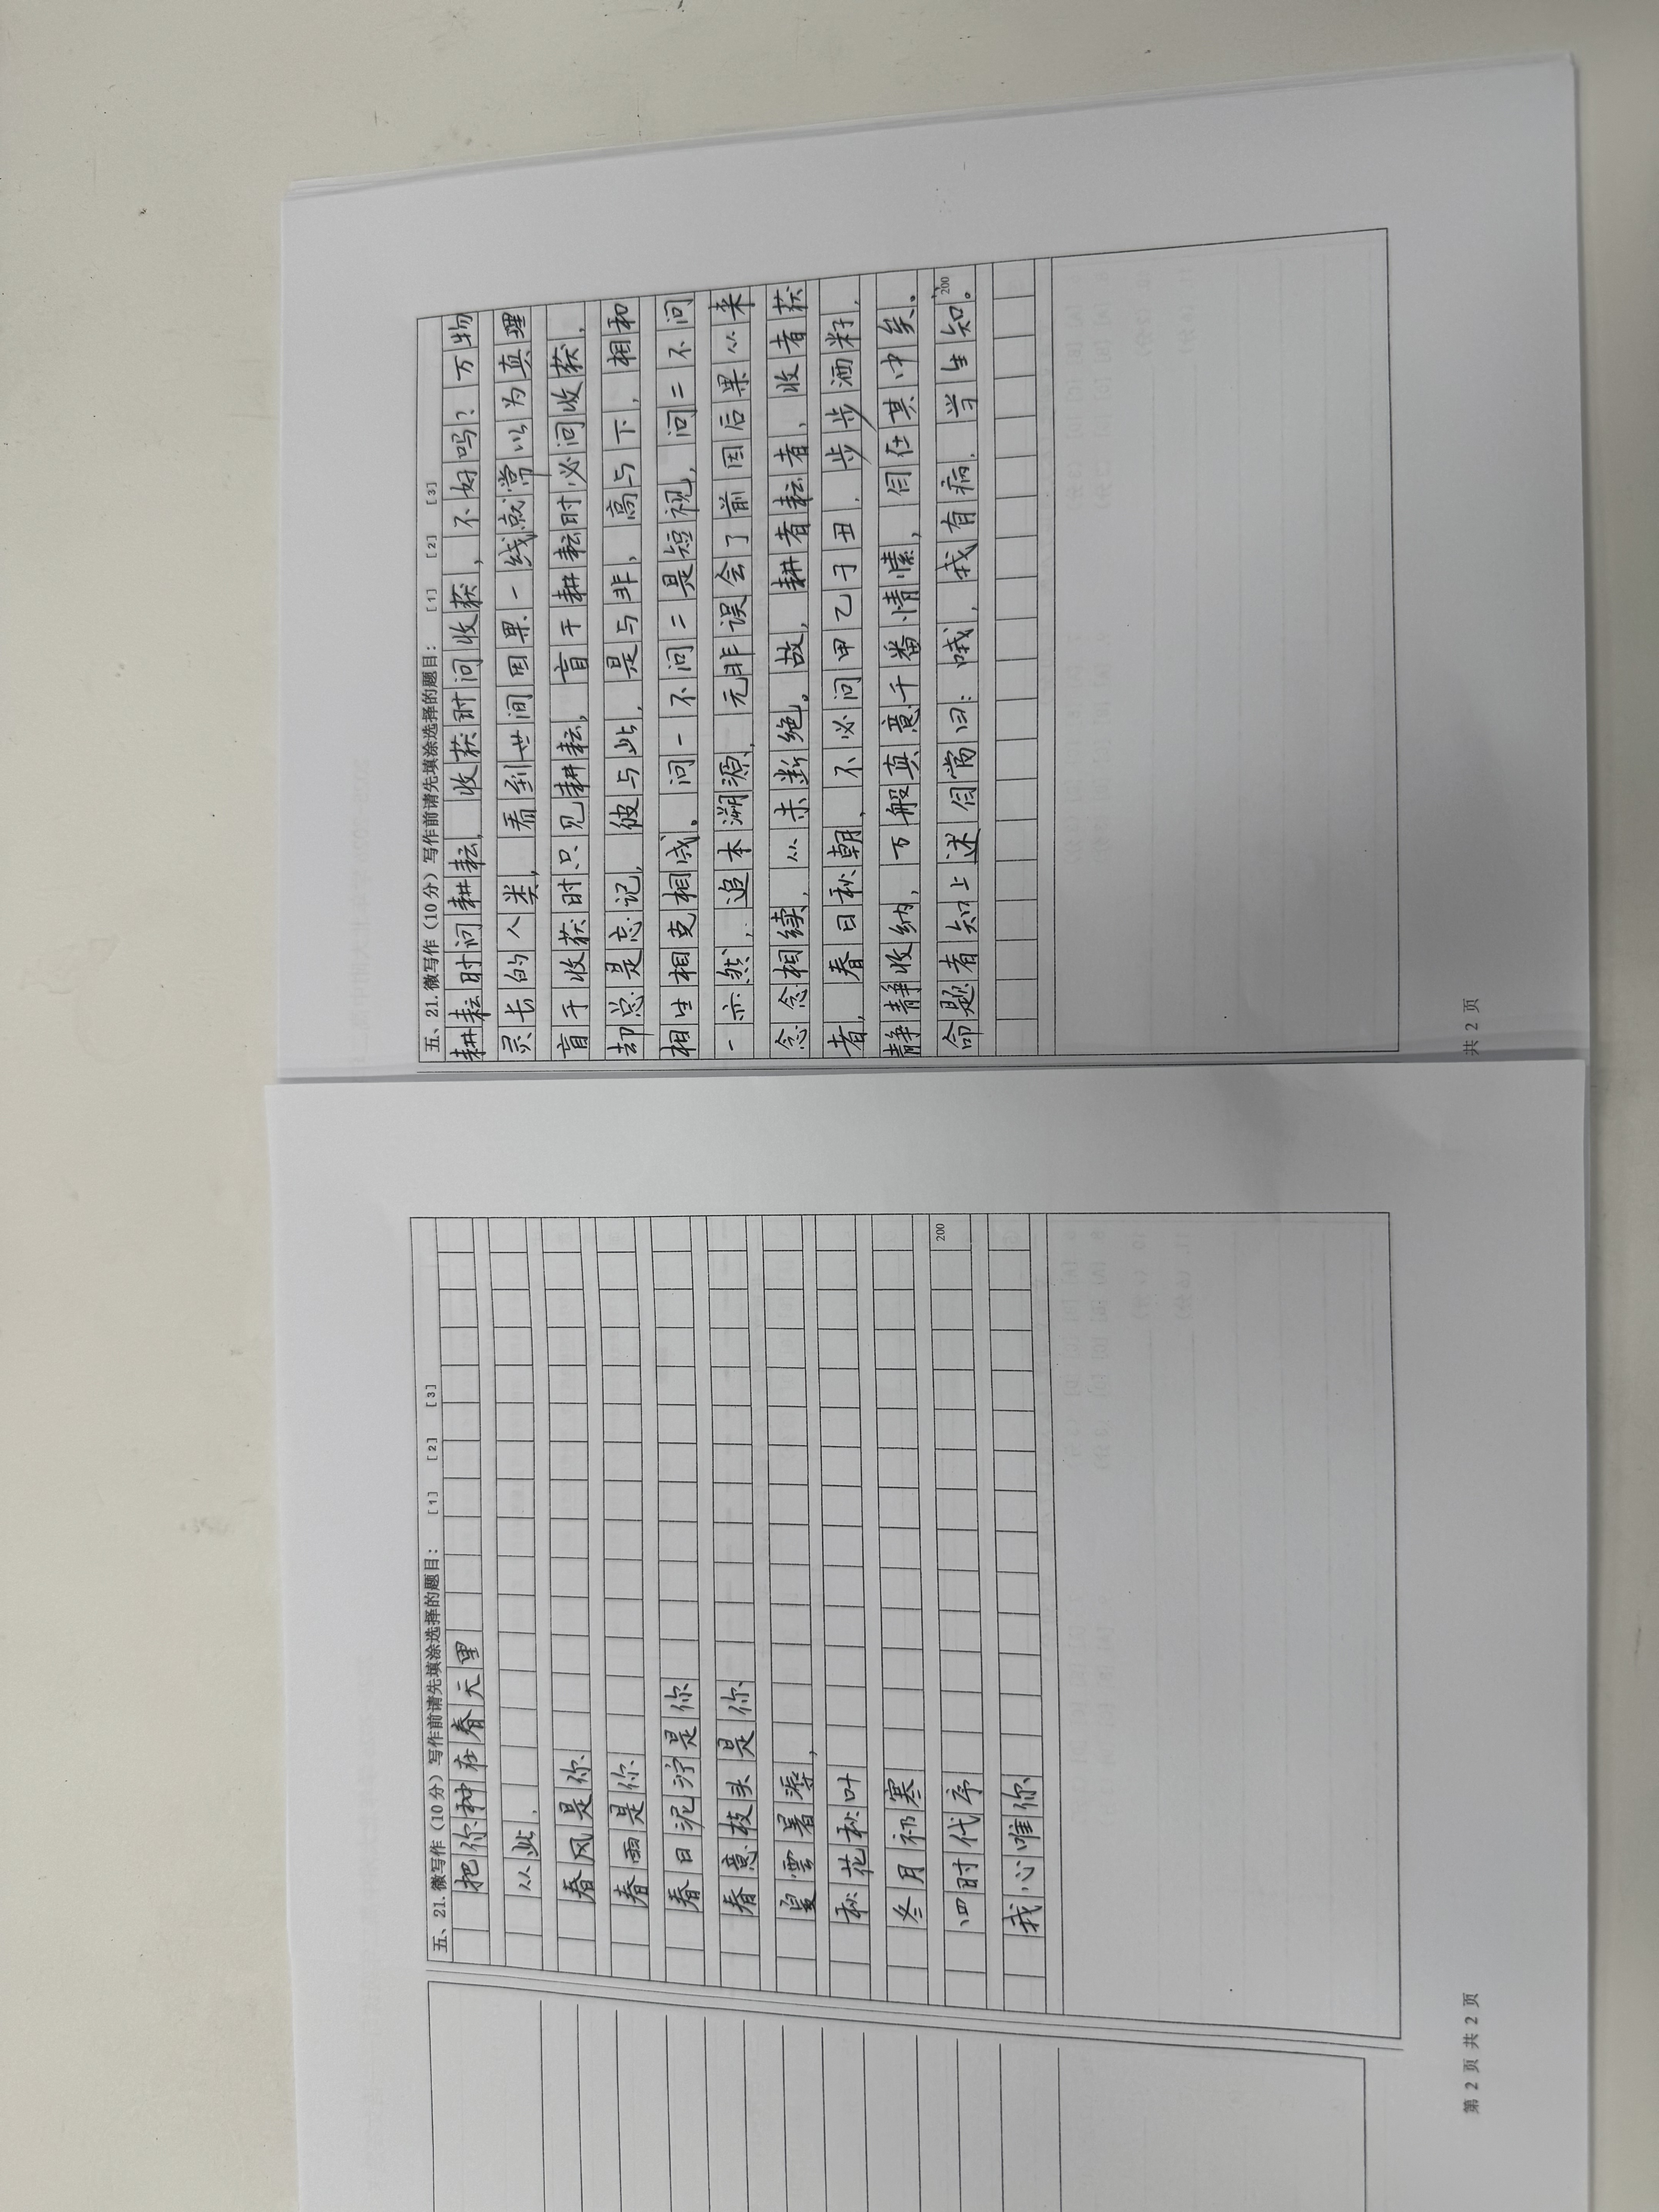 五、21. 微写作（10分）写作前请先填涂选择的题目： [1] [2] [3]
把你种在春天里
从此，
春风是你
春雨是你
春日泥泞是你
春意枝头是你
夏雲暑溽，
秋花秋叶
冬月祁寒
四时代序
200
我心唯你
第 2 页 共 2 页
五、21. 微写作（10分）写作前请先填涂选择的题目： [1] [2] [3]
耕耘时问耕耘，收获时问收获，不好吗？万物
灵长的人类，看到世间因果一线就常以为真理
盲于收获时只见耕耘，盲于耕耘时必问收获，
却总是忘记，彼与此，是与非，高与下，相和
相生相克相成。问一不问二是短视，问二不问
一亦然，追本溯源，元非误会了前因后果从来
念念相续，从未断绝。故，耕者耘者，收者获
者，春日秋朝，不必问甲乙子丑，步步洒籽，
静静收纳，万般真意千番情愫，自在其中矣。
命题者知上述自当曰：哦，我有病，当自知。
200
共 2 页